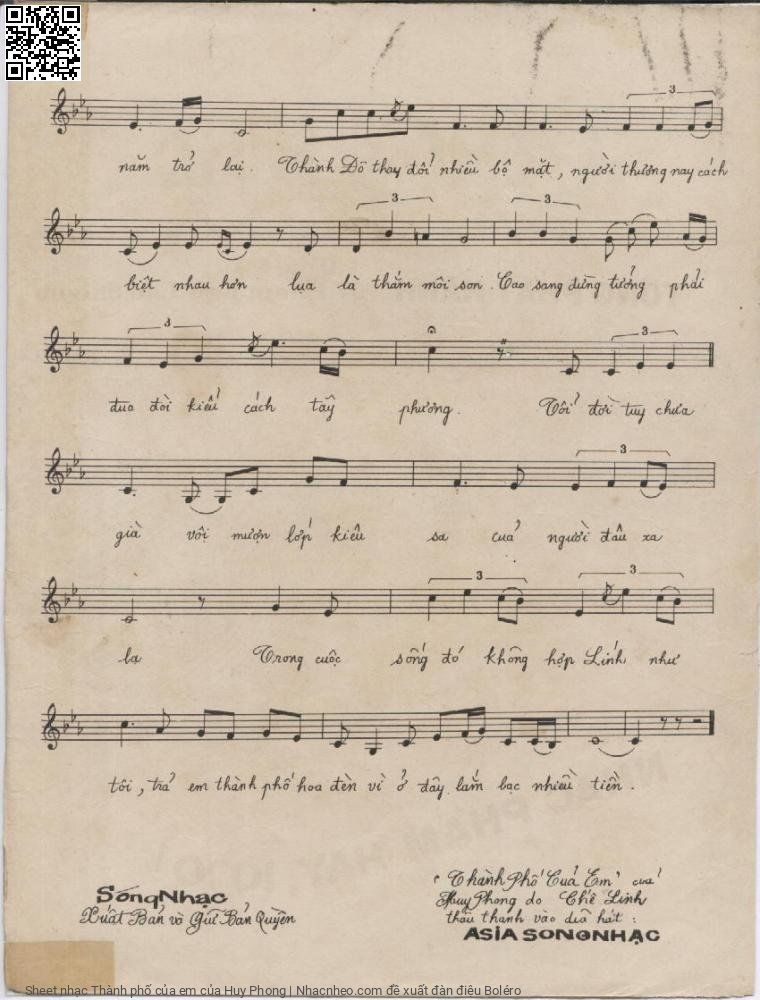 3
năm trở lại. Thành Đô thay đổi nhiều bộ mặt, người thương nay cách
3 3
biệt nhau hơn lụa là thắm môi son. Cao sang đừng tưởng phải
3 3
đua đòi kiểu cách tây phương. Tôi đời tuy chưa
3
già với mượn lớp kiêu sa của người đâu xa
3 3
lạ Trong cuộc sống đó không hợp Lính như
tôi, trả em thành phố hoa đèn vì ở đây lắm bạc nhiều tiền.
SóngNhạc
Xuất Bản và Giữ Bản Quyền
"Thành Phố Của Em" của
Huy Phong do Chế Linh
thâu thanh vào dĩa hát :
ASIA SONGNHẠC
Sheet nhạc Thành phố của em của Huy Phong | Nhacnheo.com đề xuất đàn điệu Boléro